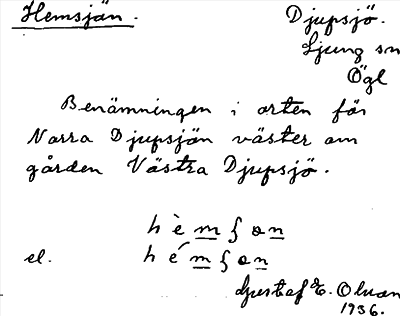 Hemsjön.
Djupsjö.
Ljung sn
Ögl
Benämningen i orten för
Norra Djupsjön väster om
gården Västra Djupsjö.
hèmʃon
el. hémʃon
Gustaf E. Olson
1936.